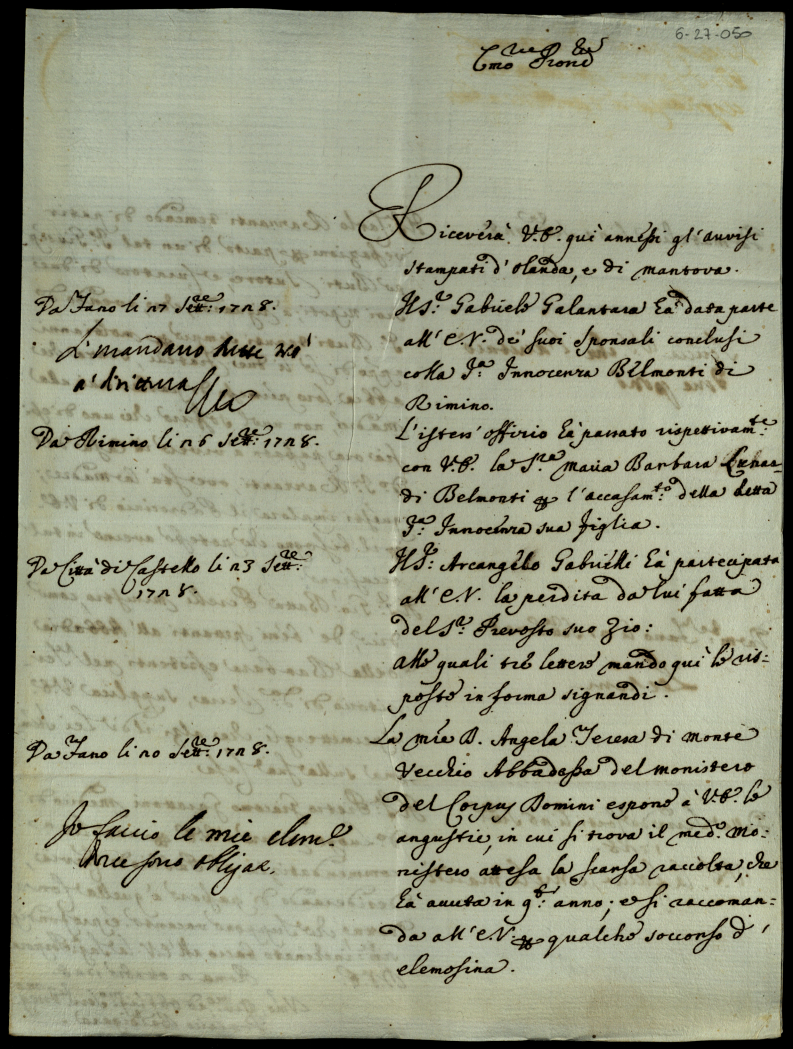 6-27-050
Riceverà V.E. quì annessi gl'avvisi
stampati d'Olanda, e di Mantova.
Da Fano li 17 Sett.re 1728.
Il S.r Gabriele Galantara hà data parte
all'E.V. de' suoi sponsali conclusi
colla S.ra Innocenza Belmonti di
Rimino.
Li mandano
a' dirittura
Da Rimino li 16 Sett.re 1728.
L'istess'offizio hà passato rispettivam.te
con V.E. la S.ra Maria Barbara
di Belmonti per l'accasam.to della detta
S.ra Innocenza sua figlia.
Da Città di Castello li 13 Sett.re
1728.
Il S.r Arcangelo Gabrielli hà partecipata
all'E.V. la perdita da lui fatta
del S.r Prevosto suo Zio:
alle quali trè lettere mando quì le ris-
poste in forma signandi.
Da Fano li 10 Sett.re 1728.
La M.re D. Angela Teresa di Monte
Vecchio Abbadessa del monistero
del Corpus Domini espone à V.E. le
angustie, in cui si trova il med.o Mo-
nistero attesa la scarsa raccolta, che
hà avuta in q.to anno; e si raccoman-
da all'E.V. per qualche soccorso d'
elemosina.
Io faccio le mie elem.e
sono obligat.